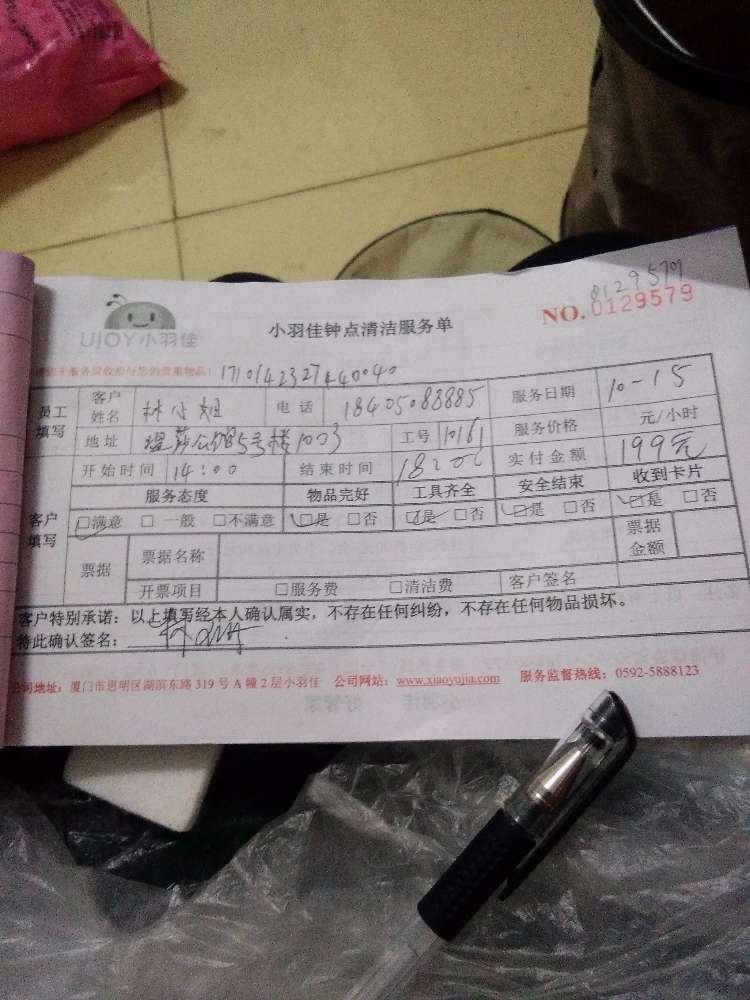 8129579
NO.0129579
UJOY小羽佳
小羽佳钟点清洁服务单
17101423274440040
员工填写 客户姓名 林小姐 电话 18405088885 服务日期 10-15
地址 5号楼1003 工号 10161 服务价格 元/小时
开始时间 14:00 结束时间 18:00 实付金额 199元
客户填写 服务态度 物品完好 工具齐全 安全结束 收到卡片
□满意 □一般 □不满意 □是 □否 □是 □否 □是 □否 □是 □否
票据 票据名称 票据金额
开票项目 □服务费 □清洁费 客户签名
客户特别承诺:以上填写经本人确认属实,不存在任何纠纷,不存在任何物品损坏。
特此确认签名:
公司地址:厦门市思明区湖滨东路 319 号 A 幢 2 层小羽佳 公司网站:www.xiaoyujia.com 服务监督热线:0592-5888123